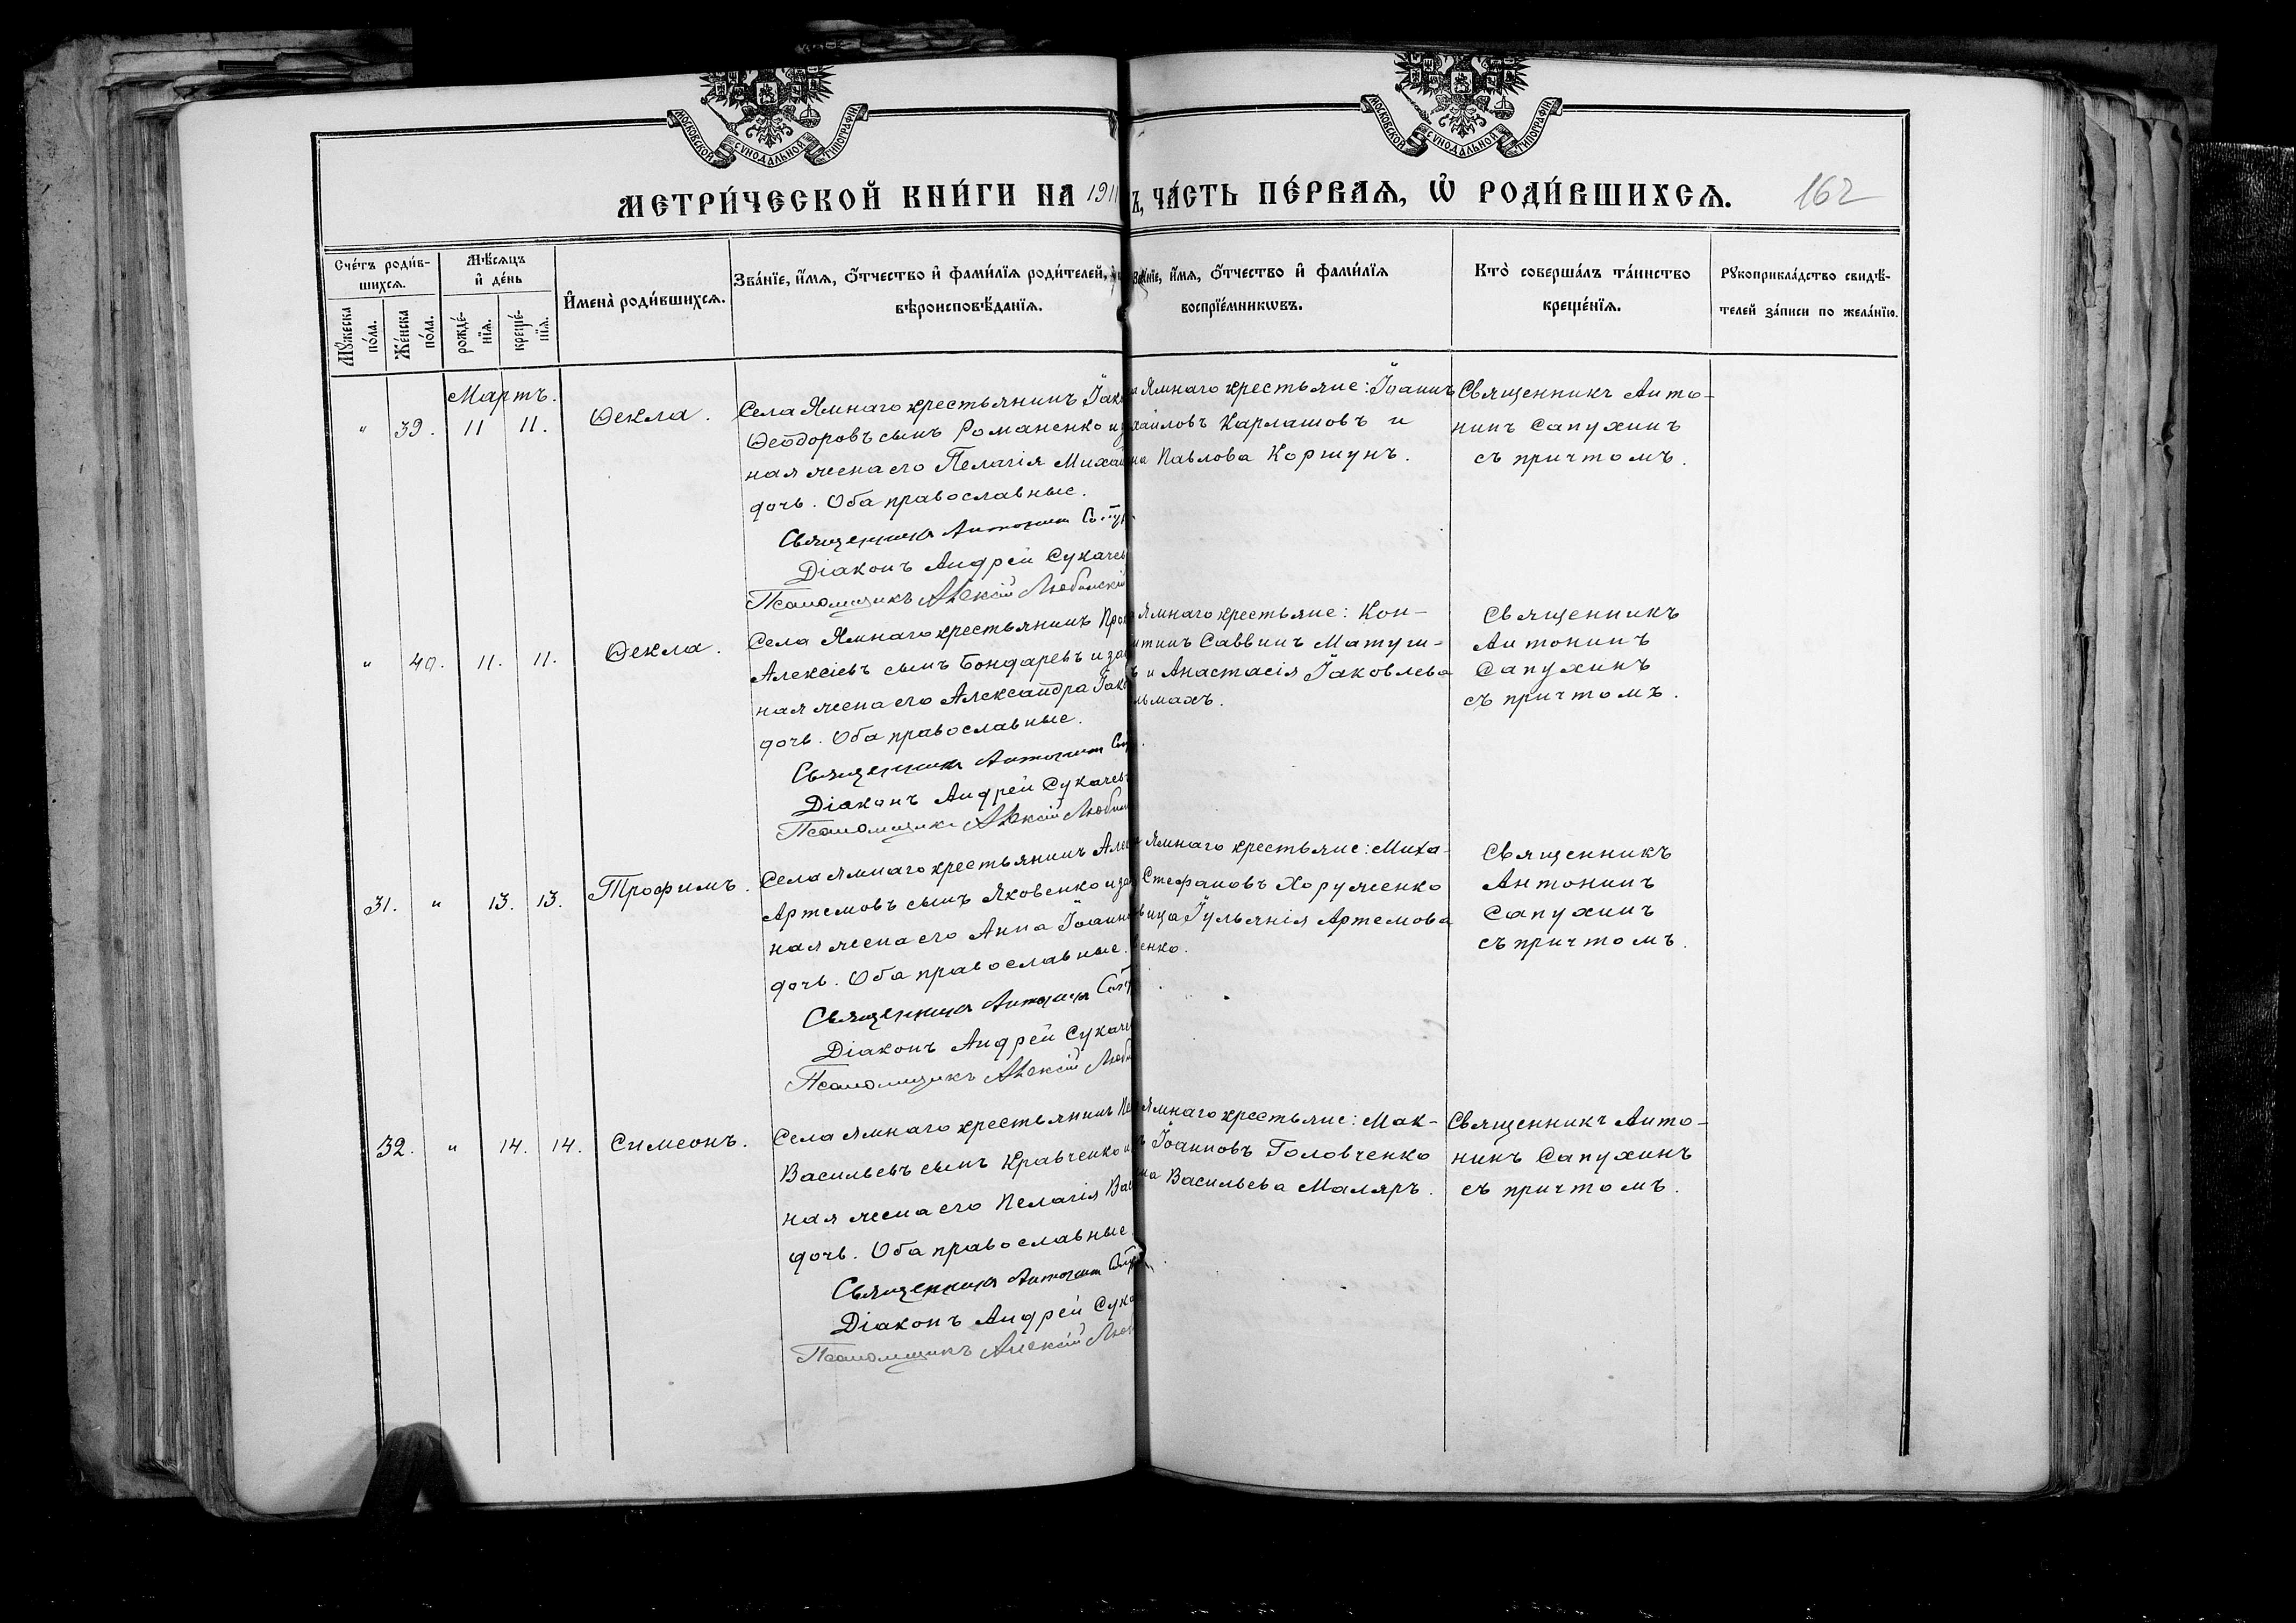 МОСКОВСКОЙ СѴНОДАЛЬНОЙ ТИПОГРАФІИ
МОСКОВСКОЙ СѴНОДАЛЬНОЙ ТИПОГРАФІИ
МЕТРИ́ЧЕСКОЙ КНИ́ГИ НА 1911
Ъ, ЧА́СТЬ ПЕ́РВАѦ, Ѡ҆ РОДИ́ВШИХСѦ.
162
Сче́тъ роди́в-
шихсѧ.
Мꙋ́жеска по́ла.
Же́нска по́ла.
Мѣ́сѧцъ
и҆ де́нь
рожде́-
нїѧ.
креще́-
нїѧ.
И҆мена̀ роди́вшихсѧ.
Зва́нїе, и҆́мѧ, ѻ҆́тчество и҆ фами́лїѧ роди́телей,
вѣроисповѣ́данїѧ.
Зва́нїе, и҆́мѧ, ѻ҆́тчество и҆ фами́лїѧ
воспрїе́мникѡвъ.
Кто̀ соверша́лъ та́инство
креще́нїѧ.
Рꙋкоприкла́дство свидѣ́-
телей за́писи по жела́нїю.
Мартъ.
" 39. 11 11. Ѳекла.
Села Ямнаго крестьянинъ Іако
Ѳеодоровъ сынъ Романенко и з
ная жена его Пелагія Михай
дочь. Оба православные.
Священникъ Антонин Сапу
Діаконъ Андрей Сукачев
Псаломщикъ Алексій Любинскій
Ямнаго крестьяне: Іоаннъ
хайловъ Карлашовъ и
на Павлова Коршунъ.
Священникъ Анто-
нинъ Сапухинъ
съ причтомъ.
" 40. 11. 11. Ѳекла.
Села Ямнаго крестьянинъ Прок
Алексіевъ сынъ Бондаревъ и зак
ная жена его Александра Іако
дочь. Оба православные.
Священникъ Антонин Сап
Діаконъ Андрей Сукачев
Псаломщикъ Алексій Любин
Ямнаго крестьяне: Кон-
нтинъ Саввинъ Матуш-
ъ и Анастасія Іаковлева
льмахъ.
Священникъ
Антонинъ
Сапухинъ
съ причтомъ.
31. " 13. 13. Трофимъ.
Села Ямнаго крестьянинъ Алек
Артемовъ сынъ Яковенко и зак
ная жена его Анна Іоанно
дочь. Оба православные.
Священникъ Антонин Сап
Діаконъ Андрей Сукаче
Псаломщикъ Алексій Люби
Ямнаго крестьяне: Миха-
Стефановъ Хоруженко
вица Іульянія Артемова
венко.
Священникъ
Антонинъ
Сапухинъ
съ причтомъ.
32. " 14. 14. Симеонъ.
Села Ямнаго крестьянинъ Пе
Васильевъ сынъ Кравченко и
ная жена его Пелагія Вас
дочь. Оба православные
Священникъ Антонин Сапу
Діаконъ Андрей Сука
Псаломщикъ Алексій Люб
Ямнаго крестьяне: Мак-
ъ Іоанновъ Головченко
на Васильева Маляръ.
Священникъ Анто-
нинъ Сапухинъ
съ причтомъ.